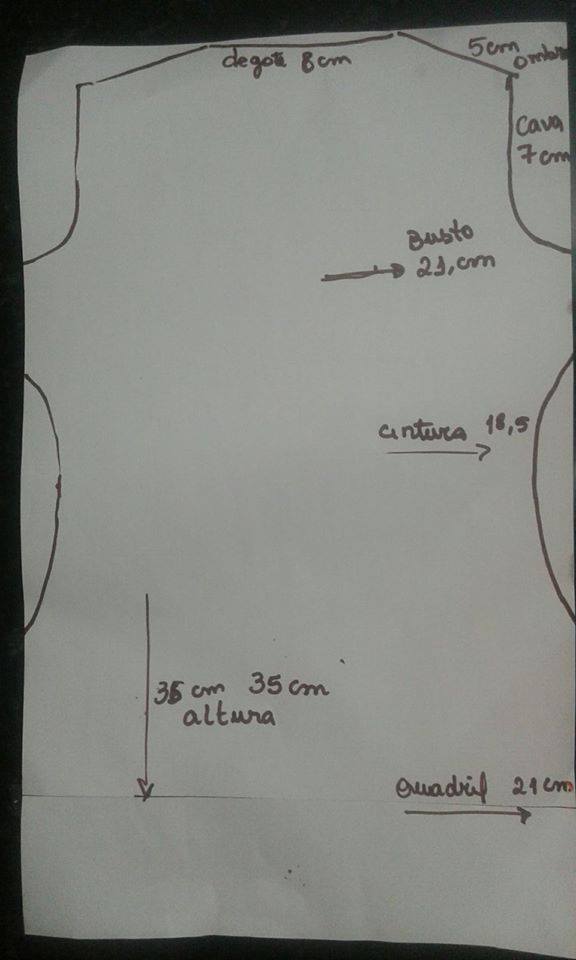 degote 8 cm
5cm
ombro
Cava
7 cm
Busto
21, cm
cintura 18,5
35 cm 35 cm
altura
Quadril 21 cm